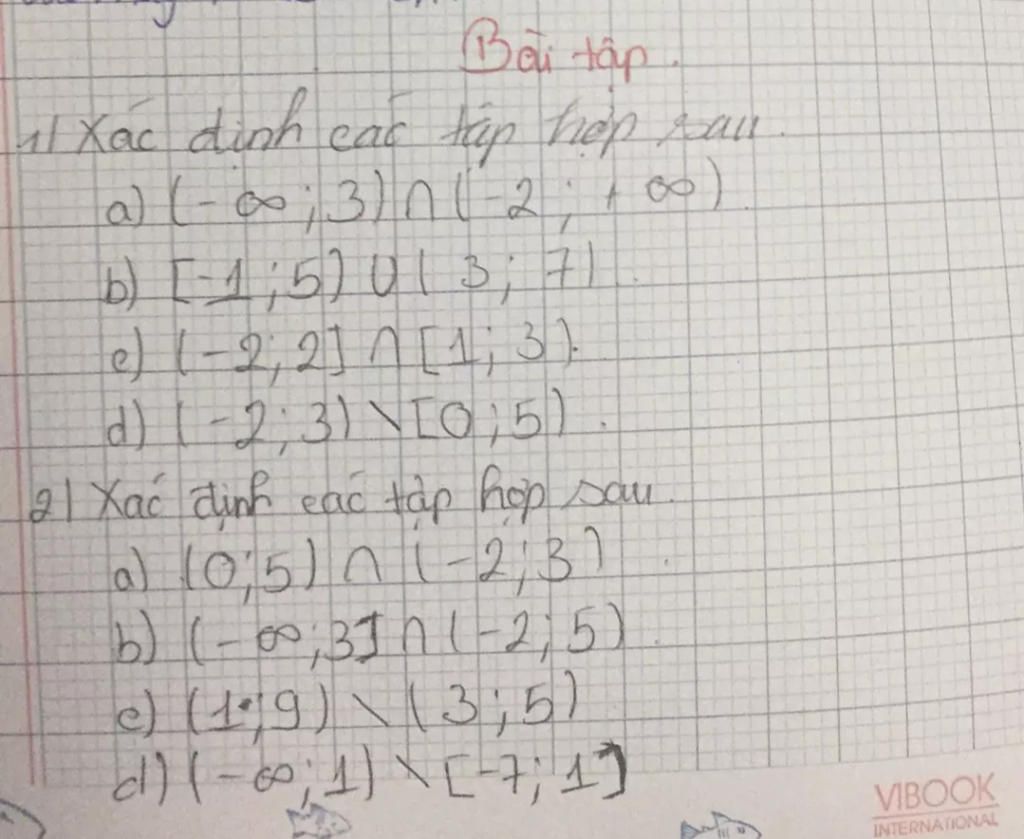 Bài tập.
1) Xác định các tập hợp sau.
a) (-∞; 3) ∩ (-2; +∞)
b) [-1; 5) ∪ (3; 7)
c) (-2; 2] ∩ [1; 3).
d) (-2; 3) \ [0; 5).
2) Xác định các tập hợp sau.
a) (0; 5) ∩ (-2; 3)
b) (-∞; 3] ∩ (-2; 5)
c) (1; 9) \ (3; 5)
d) (-∞; 1) \ [-7; 1]
VIBOOK
INTERNATIONAL